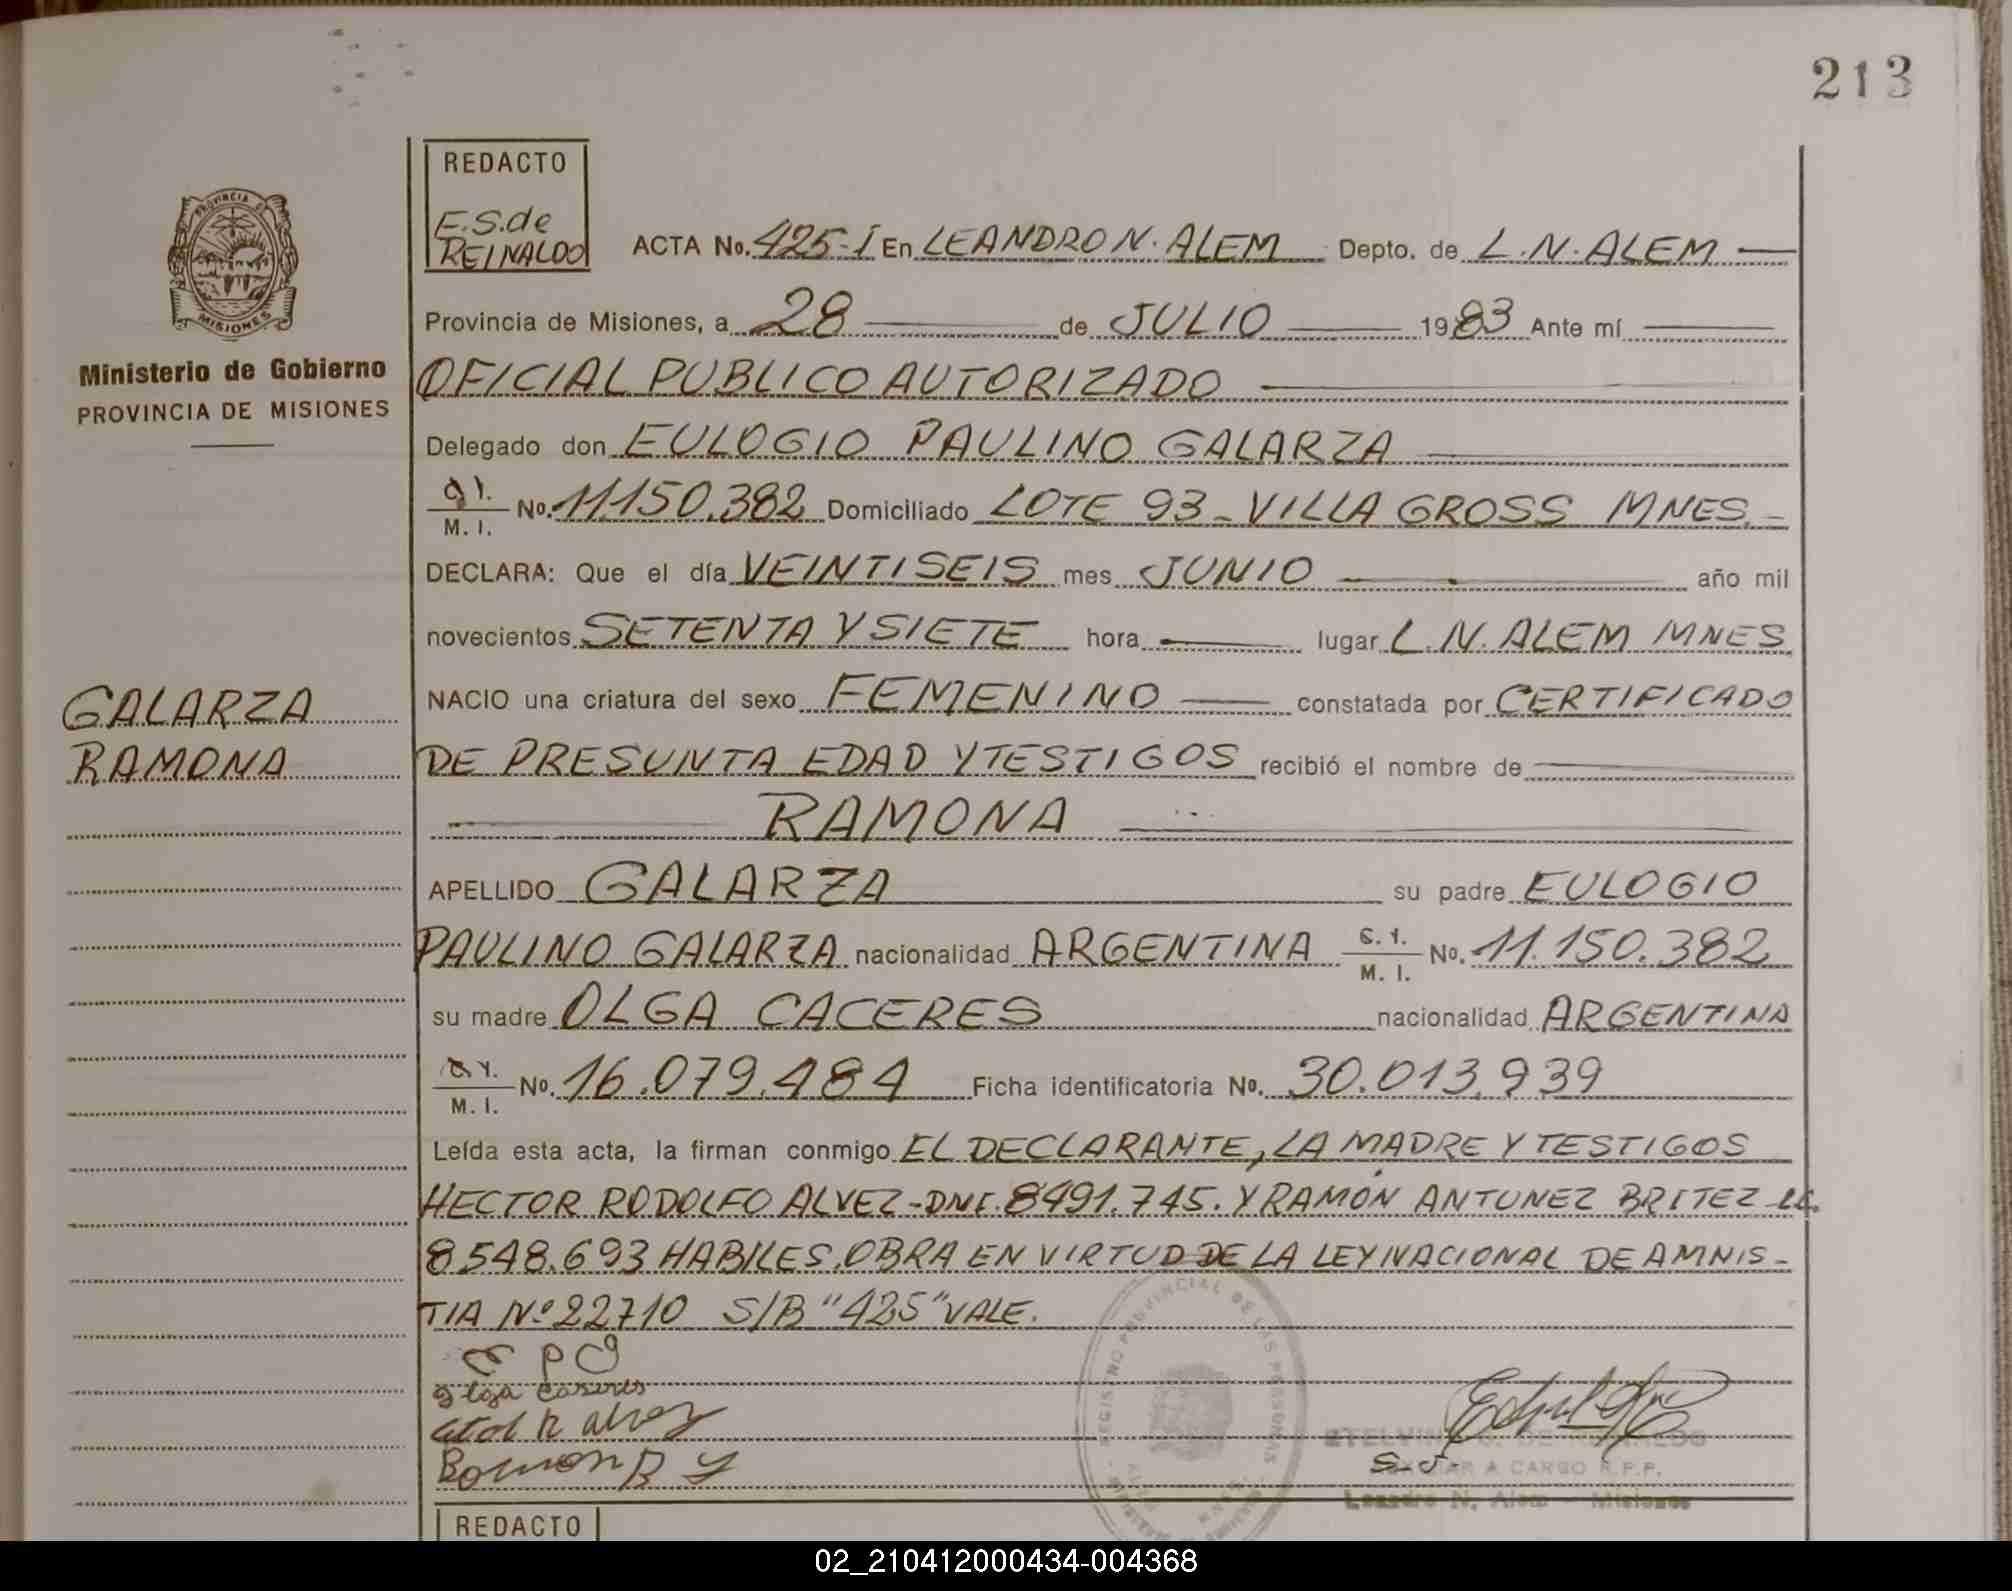 213
REDACTO
E.S.de
REINALDO
ACTA No. 425-I En LEANDRO N. ALEM Depto. de L.N. ALEM
PROVINCIA DE
MISIONES
Provincia de Misiones, a 28 de JULIO 1983 Ante mí
Ministerio de Gobierno
PROVINCIA DE MISIONES
OFICIAL PUBLICO AUTORIZADO
Delegado don EULOGIO PAULINO GALARZA
M. I. No. 11.150.382 Domiciliado LOTE 93 - VILLA GROSS MNES.-
DECLARA: Que el día VEINTISEIS mes JUNIO año mil
novecientos SETENTA Y SIETE hora lugar L.N. ALEM MNES
GALARZA
RAMONA
NACIO una criatura del sexo FEMENINO constatada por CERTIFICADO
DE PRESUNTA EDAD Y TESTIGOS recibió el nombre de
RAMONA
APELLIDO GALARZA su padre EULOGIO
PAULINO GALARZA nacionalidad ARGENTINA M. I. No. 11.150.382
su madre OLGA CACERES nacionalidad ARGENTINA
M. I. No. 16.079.484 Ficha identificatoria No. 30.013.939
Leída esta acta, la firman conmigo EL DECLARANTE, LA MADRE Y TESTIGOS
HECTOR RODOLFO ALVEZ-DNI. 8491.745. Y RAMÓN ANTUNEZ BRITEZ LE.
8548.693 HABILES. OBRA EN VIRTUD DE LA LEY NACIONAL DE AMNIS-
TIA Nº 22710 S/B "425" VALE.
E P G
Olga Caseres
REGISTRO PROVINCIAL DE LAS PERSONAS
A CARGO R.P.P.
Leandro N. Alem - Misiones
REDACTO
02_210412000434-004368